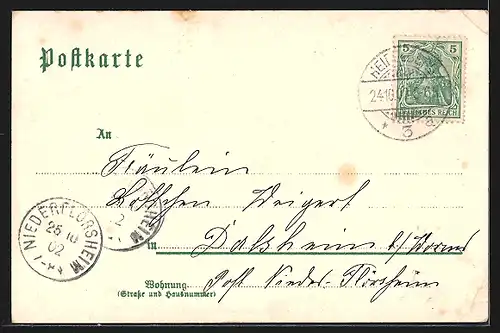 Postkarte
5 5
24.10.02
DEUTSCHES REICH
* 3 a
An
Fräulein
Lottchen Weigert
NIEDERFLÖRSHEIM
25 10
02
in Dalsheim b/Worms
Wohnung Post Nieder-Flörsheim
(Straße und Hausnummer)